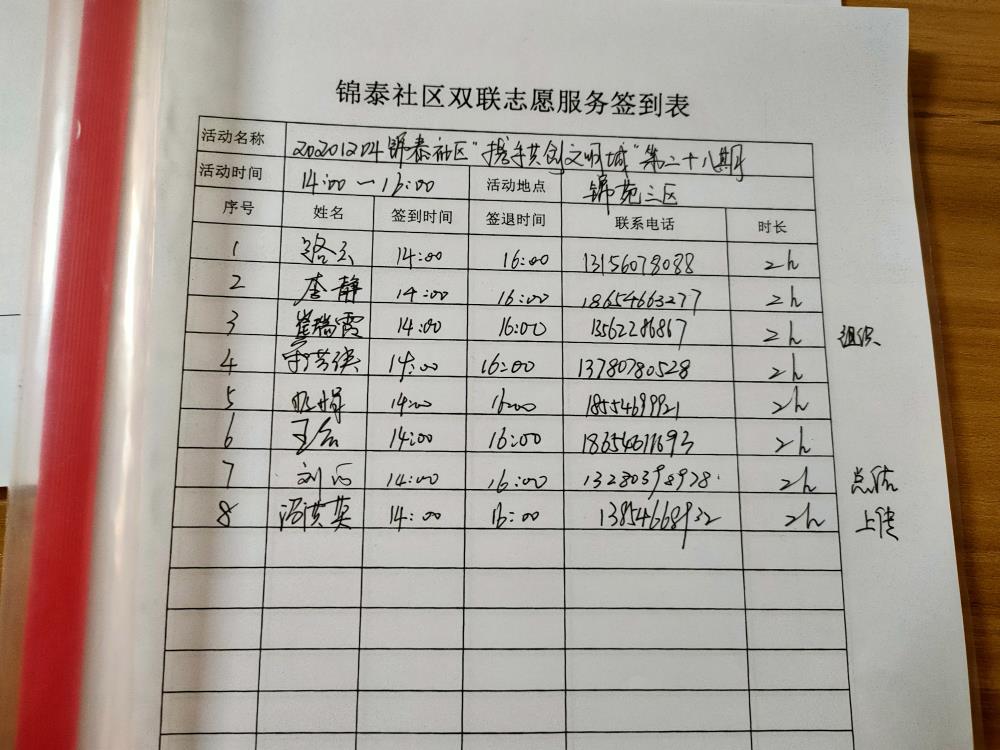 锦泰社区双联志愿服务签到表
活动名称 20201204锦泰社区"携手共创文明城"第二十八期
活动时间 14:00—16:00 活动地点 锦苑三区
序号 姓名 签到时间 签退时间 联系电话 时长
1 14:00 16:00 13156078088 2h
2 李静 14:00 16:00 18654663277 2h
3 崔瑞霞 14:00 16:00 13562286867 2h 组织
4 14:00 16:00 13780780528 2h
5 14:00 16:00 18554699921 2h
6 14:00 16:00 18654611693 2h
7 刘 14:00 16:00 13280398928 2h 总结
8 洪英 14:00 16:00 13854668932 2h 上传